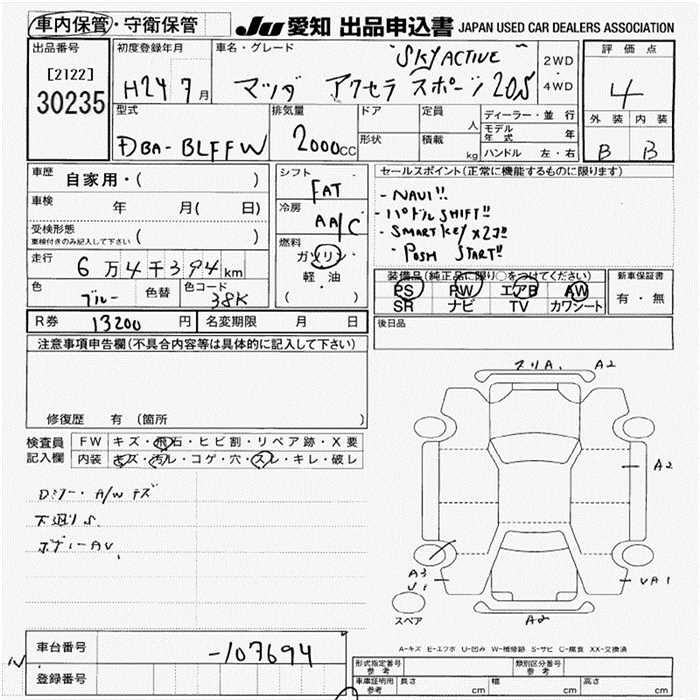 車内保管・守衛保管 JU 愛知 出品申込書 JAPAN USED CAR DEALERS ASSOCIATION
出品番号 [2122] 30235
初度登録年月 H24 7月
車名・グレード "SKYACTIVE" マツダ アクセラスポーツ 20S
2WD・4WD
評価点 4
外装 内装
B B
型式 DBA-BLFFW
排気量 2000cc
ドア 定員 人
形状 積載 kg
ディーラー・並行
モデル年式 年
ハンドル 左・右
車歴 自家用・( )
車検 年 月( 日)
受検形態 車検付きのみ記入して下さい ( )
走行 6万4千394km
色 ブルー 色替 色コード 38K
シフト FAT
冷房 AA/C
燃料 ガソリン・軽・油 ( )
セールスポイント(正常に機能するものに限ります)
- NAVI!!
- パドルSHIFT!!
- SMART KEY x2コ!!
- PUSH START!!
装備品(純正品に限り○をつけてください)
PS PW エアB AW
SR ナビ TV カワシート
新車保証書 有・無
R券 13200円 名変期限 月 日
後日品
注意事項申告欄(不具合内容等は具体的に記入して下さい)
修復歴 有 (箇所 )
検査員記入欄
FW キズ・飛石・ヒビ割・リペア跡・X要
内装 キズ・汚レ・コゲ・穴・スレ・キレ・破レ
A/W キズ
下廻りS.
ボディーAU.
A2
A2
A3
U1
UA1
A2
スペア
A-キズ E-エクボ U-凹み W-補修跡 S-サビ C-腐食 XX-交換済
車台番号 -107694
登録番号
形式指定番号 参考 類別区分番号 参考
車庫証明用 参考 長さ cm 幅 cm 高さ cm